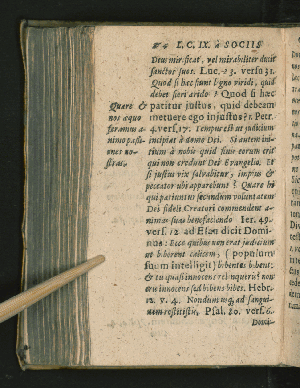 L. C. IX. à SOCIIS
Deus mirificat, vel mirabiliter ducit
sanctos suos. Luc. 23. vers. 31.
Quod si hæc fiunt ligno viridi, quid
debet fieri arido? Quod si hæc
Quare &
patitur justus, quid debeam
nos æquo
metuere ego injustus? 1. Petr.
feramus a-
4. vers. 17. Tempus est ut judicium
nimo passi-
incipiat à domo Dei. Si autem ini-
ones no-
tium à nobis quid fiet eorum
stras.
qui non credunt Dei Evangelio. Et
si justus vix salvabitur, impius &
peccator ubi apparebunt? Quare hi
qui patiuntur secundum voluntatem
Dei fideli Creatori commendent a-
nimas suas benefaciendo Ier. 49.
vers. 12 ad Esau dicit Domi-
nus: Ecce quibus non erat judicium
ut biberent calicem, (populum
suum intelligit) bibentes bibent:
& tu quasi innocens relinqueris? non
eris innocens sed bibens bibes. Hebr.
12. v. 4. Nondum usq, ad sangui-
nem restitistis, Psal. 80. vers. 6.